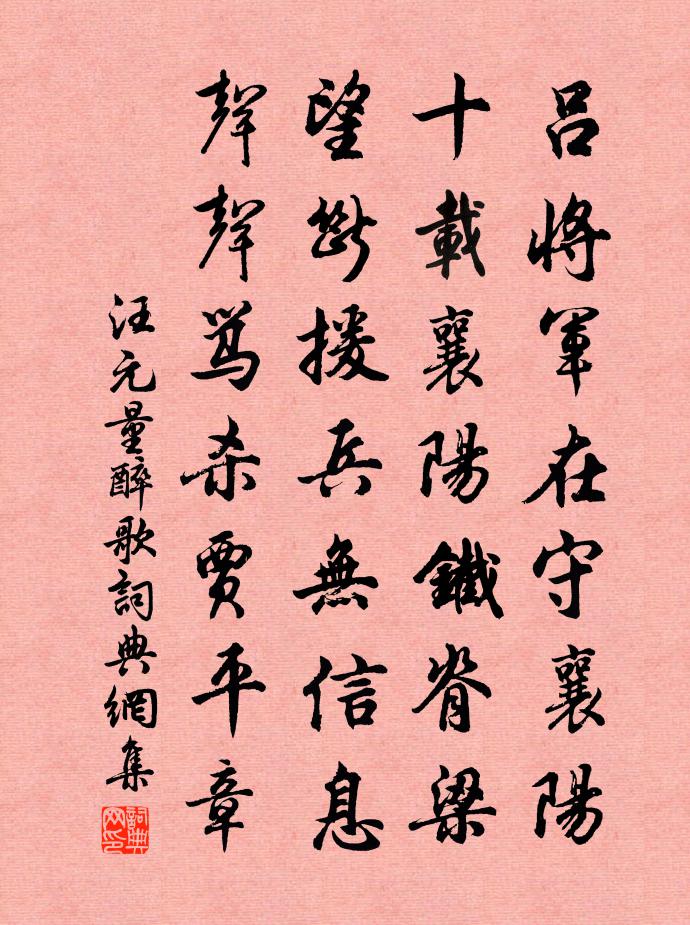 吕將軍在守襄陽
十載襄陽鐵脊梁
望斷援兵無信息
聲聲骂杀賈平章
汪元量醉歌詞典網集
詞典网印